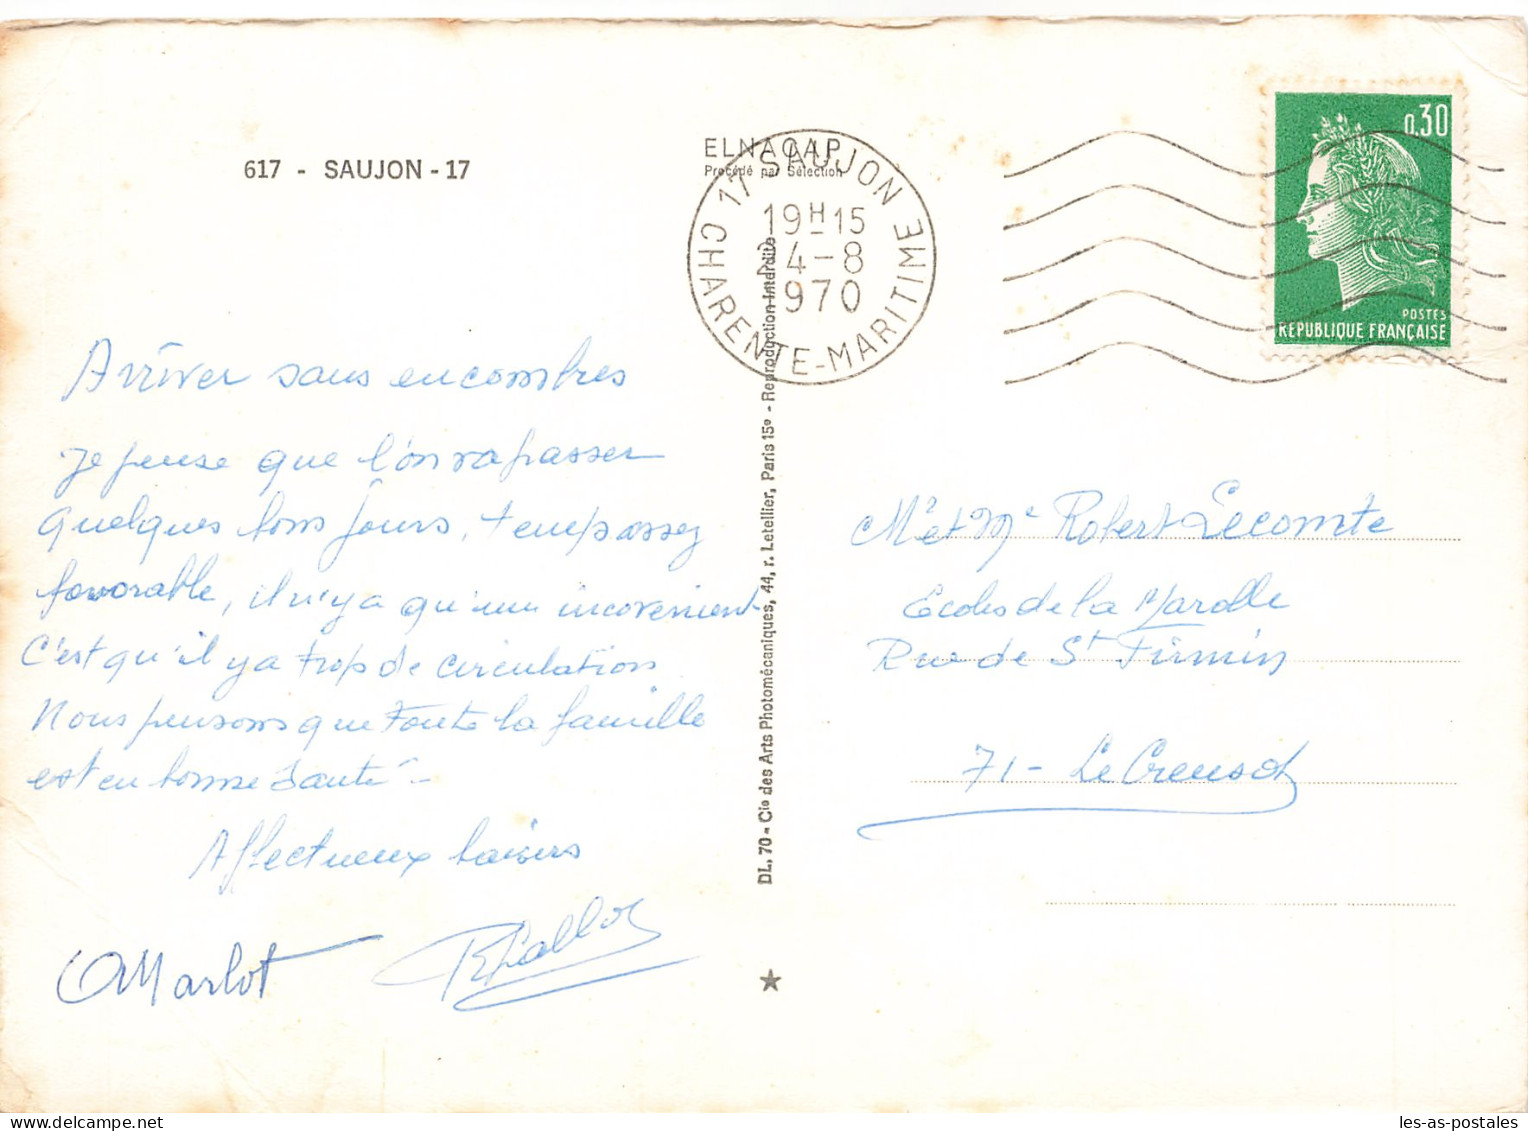 617 - SAUJON - 17
ELNACAP
Procédé par Sélection
17 SAUJON
CHARENTE-MARITIME
19H15
4-8
970
0,30
POSTES
REPUBLIQUE FRANÇAISE
Arriver sans encombres
Je pense que l'on va passer
quelques bons jours, temps assez
favorable, il n'y a qu'un inconvenient
C'est qu'il y a trop de circulation
Nous pensons que toute la famille
est en bonne santé -
Affectueux baisers
Marlot
DL. 70 - Cie des Arts Photomécaniques, 44, r. Letellier, Paris 15e - Reproduction Interdite
Mr et Me Robert Lecomte
Ecoles de la Marolle
Rue de St Firmin
71 - Le Creusot
les-as-postales